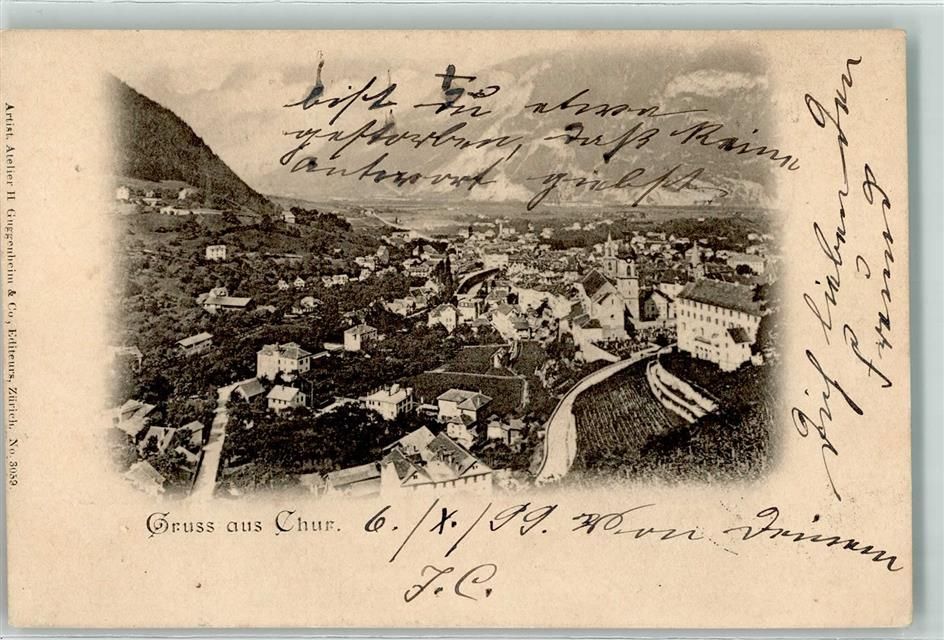 bist du etwa
gestorben, daß Keine
antwort giebst
Gruss aus Chur.
6./X./99. Von Deinem
Dich lieben den
J. C.
Artist. Atelier H. Guggenheim & Co., Editeurs, Zürich. No. 3089.